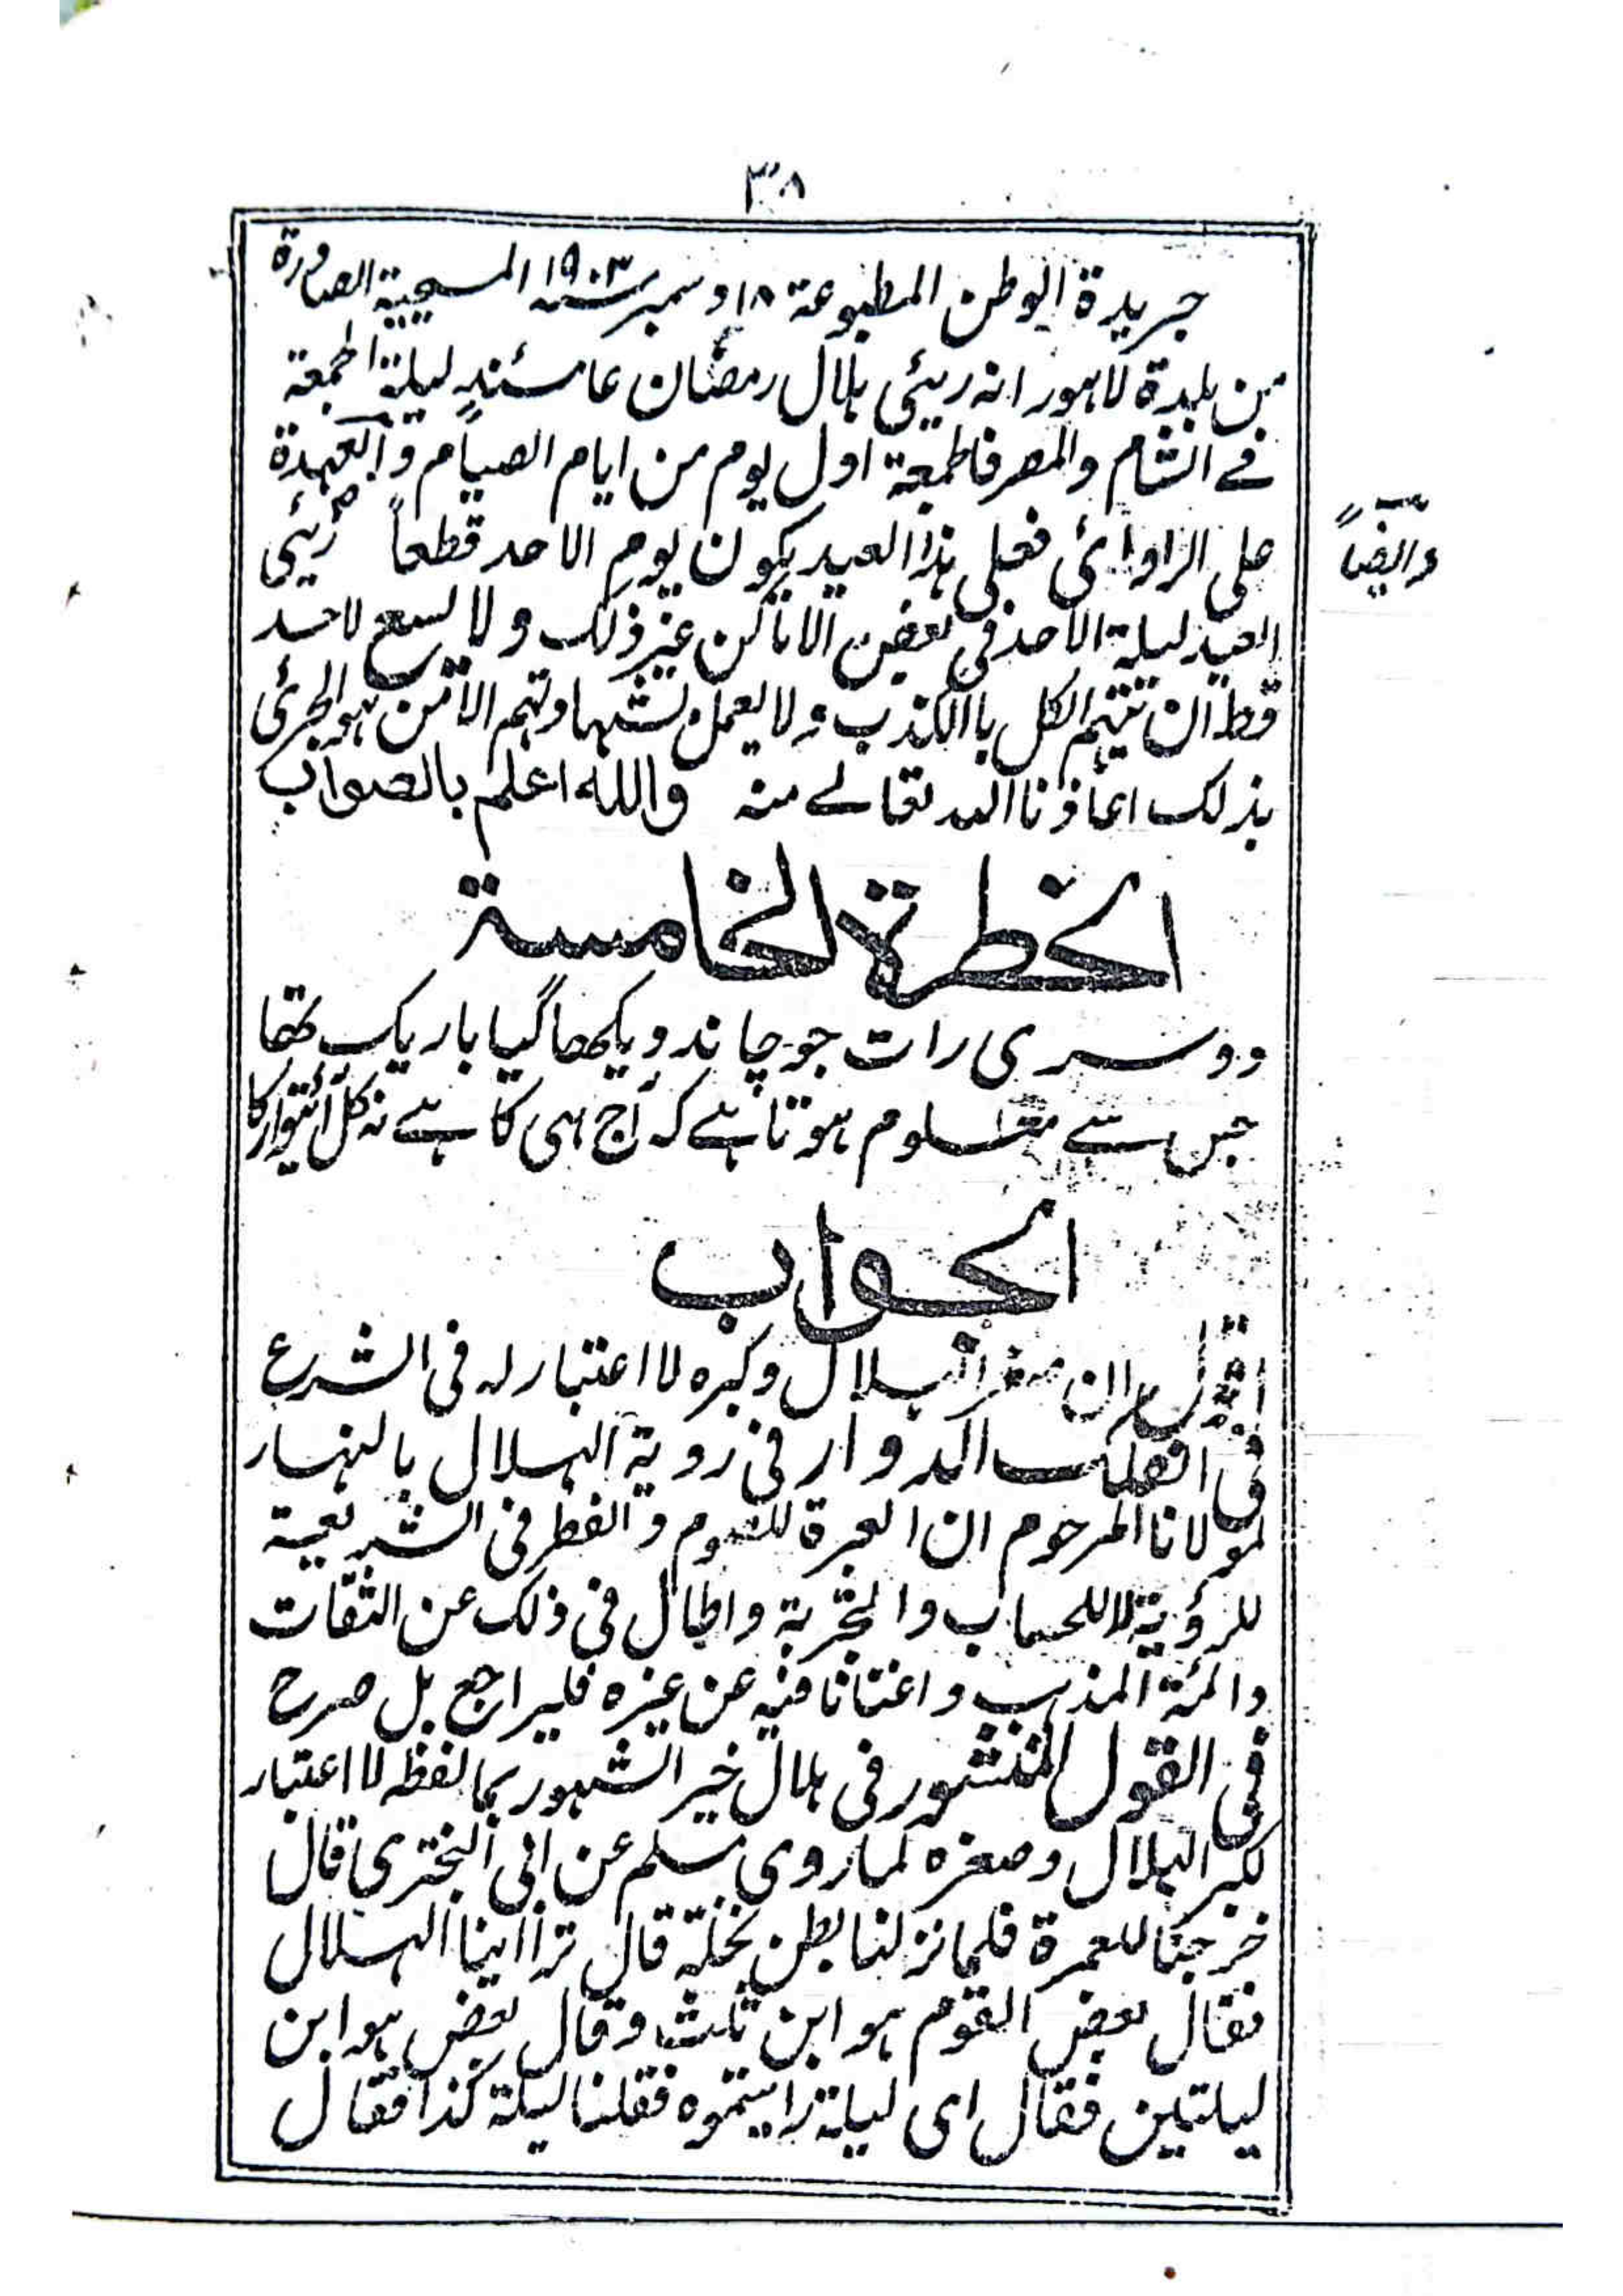 ٣٨
جريدة الوطن المطبوعة ١٨ دسمبر سنه ١٩٠٣ المسيحية الصادرة
من بلدة لاهور انه ريئى هلال رمضان عامئذٍ ليلة الجمعة
فے الشام والمصر فالجمعة اول يوم من ايام الصيام والعهدة
على الراوائى فعلى هذا العيد يكون يوم الاحد قطعاً رئى
وايضاً
العيد ليلة الاحد فى بعض الاماكن غير ذلك ولا يسع لاحد
قط ان يتهم الكل باالكذب ولا يعمل بشهادتهم الا من هو الجرئى
بذلك اعاذنا الله تعالے منه والله اعلم بالصواب
الخطرة الخامسة
دوسری رات جو چاند دیکھا گیا باریک تھا
جس سے معلوم ہوتا ہے کہ آج ہی کا ہے نہ کل اتوار کا
الجواب
اقول ان صغر الهلال وكبره لا اعتبار له فى الشرع
فى الفلك الدوار فى روية الهلال بالنهار
لمولانا المرحوم ان العبرة للصوم والفطر فى الشريعة
للرؤية لا للحساب والتجربة واطال فى ذلك عن الثقات
وائمة المذهب واغنانا فيه عن غيره فليراجع بل صرح
فى القول المنشور فى هلال خير الشهور بما لفظه لا اعتبار
لكبر الهلال وصغره لما روى مسلم عن ابى البخترى قال
خرجنا للعمرة فلما نزلنا بطن نخلة قال تراأينا الهلال
فقال بعض القوم هو ابن ثلث وقال بعض هو ابن
ليلتين فقال اى ليلة رايتموه فقلنا ليلة كذا فقال